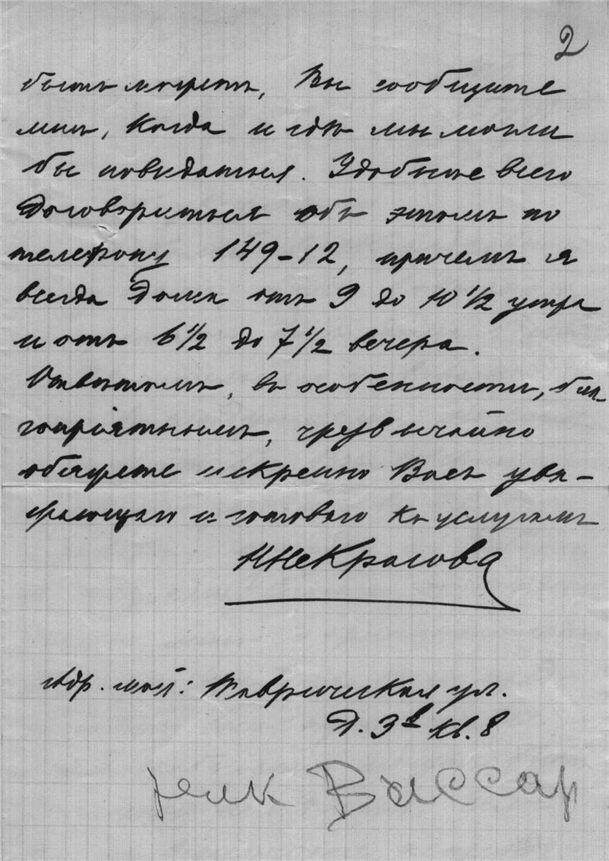 2
быть можетъ, Вы сообщите
мнѣ, когда и гдѣ мы могли
бы повидаться. Удобнѣе всего
договориться объ этомъ по
телефону 149-12, причемъ я
всегда дома отъ 9 до 10 1/2 утра
и отъ 6 1/2 до 7 1/2 вечера.
Отвѣтомъ, въ особенности, бла-
гопріятнымъ, чрезвычайно
обяжете искренно Васъ ува-
жающаго и готоваго къ услугамъ
ННекрасова
Адр. мой: Таврическая ул.
д. 3в кв. 8
Вассар